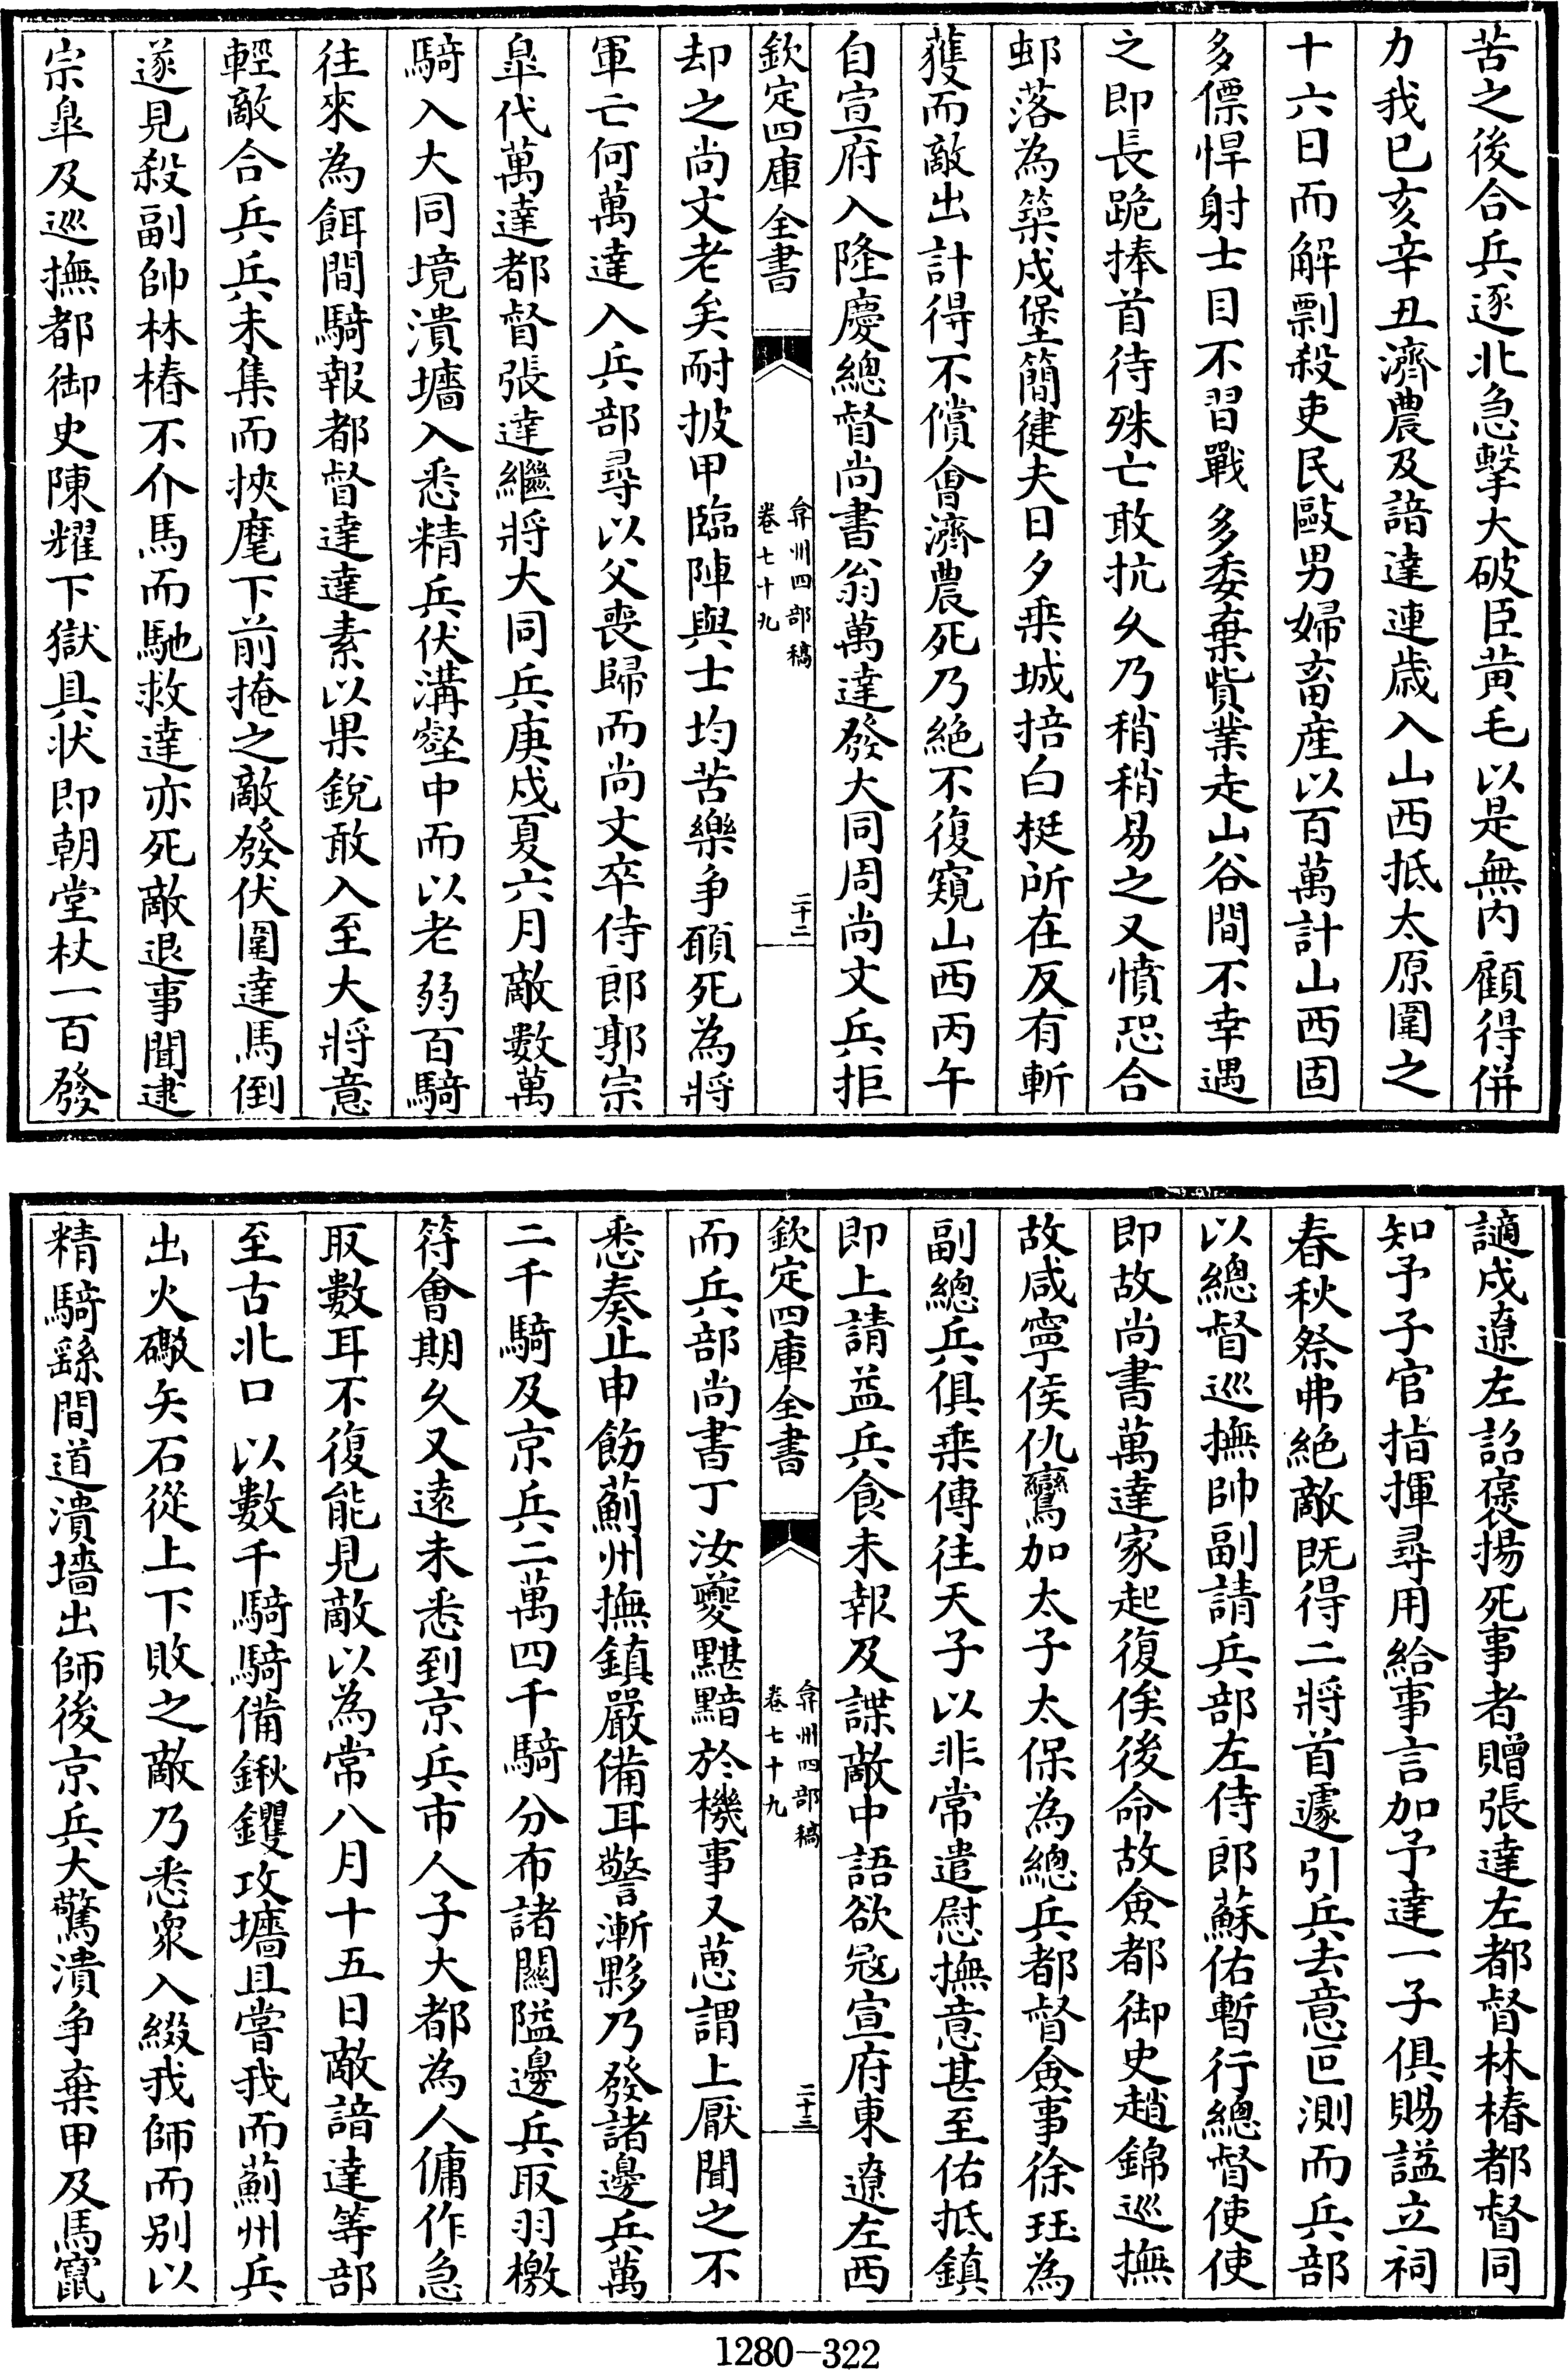 苦之後合兵逐北急擊大破臣黄毛以是無内顧得併
力我已亥辛丑濟農及諳達連歲入山西抵太原圍之
十六日而解剽殺吏民毆男婦畜産以百萬計山西固
多僄悍射士目不習戰多委棄貲業走山谷間不幸遇
之即長跪捧首待殊亡敢抗乆乃稍稍易之又憤恐合
邨落為築戍堡簡健夫日夕乗城掊白梃所在反有斬
獲而敵出計得不償會濟農死乃絶不復窺山西丙午
自宣府入隆慶總督尚書翁萬達發大同周尚文兵拒
欽定四庫全書
弇州四部稿
卷七十九
二十二
却之尚文老矣耐披甲臨陣與士均苦樂争願死為將
軍亡何萬達入兵部尋以父喪歸而尚文卒侍郎郭宗
臯代萬達都督張達繼將大同兵庚戌夏六月敵數萬
騎入大同境潰墻入悉精兵伏溝壑中而以老弱百騎
往來為餌間騎報都督達達素以果銳敢入至大將意
輕敵合兵兵未集而挾麾下前掩之敵發伏圍達馬倒
遂見殺副帥林椿不介馬而馳救達亦死敵退事聞逮
宗臯及巡撫都御史陳耀下獄具状即朝堂杖一百發
謫戍遼左詔褒揚死事者贈張達左都督林椿都督同
知予子官指揮尋用給事言加予達一子俱賜諡立祠
春秋祭弗絶敵既得二將首遽引兵去意叵測而兵部
以總督巡撫帥副請兵部左侍郎蘇佑暫行總督使使
即故尚書萬達家起復俟後命故僉都御史趙錦巡撫
故咸寧侯仇鸞加太子太保為總兵都督僉事徐珏為
副總兵俱乗傳往天子以非常遣慰撫意甚至佑抵鎮
即上請益兵食未報及諜敵中語欲宼宣府東遼左西
欽定四庫全書
弇州四部稿
卷七十九
二十三
而兵部尚書丁汝夔黮黯於機事又葸謂上厭聞之不
悉奏止申飭薊州撫鎮嚴備耳警漸夥乃發諸邊兵萬
二千騎及京兵二萬四千騎分布諸關隘邊兵取羽檄
符會期乆又遠未悉到京兵市人子大都為人傭作急
取數耳不復能見敵以為常八月十五日敵諳達等部
至古北口以數千騎騎備鍬钁攻墻且嘗我而薊州兵
出火礮矢石從上下敗之敵乃悉衆入綴我師而别以
精騎繇間道潰墻出師後京兵大驚潰争棄甲及馬竄
1280-322